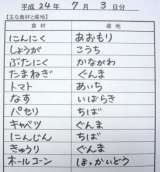 平成 24年 7月 3日分
【主な食材と産地】
食材 産地
にんにく あおもり
しょうが こうち
ぶたにく かながわ
たまねぎ ぐんま
トマト あいち
なす いばらき
パセリ ちば
キャベツ ぐんま
にんじん ちば
きゅうり ぐんま
ホールコーン ほっかいどう